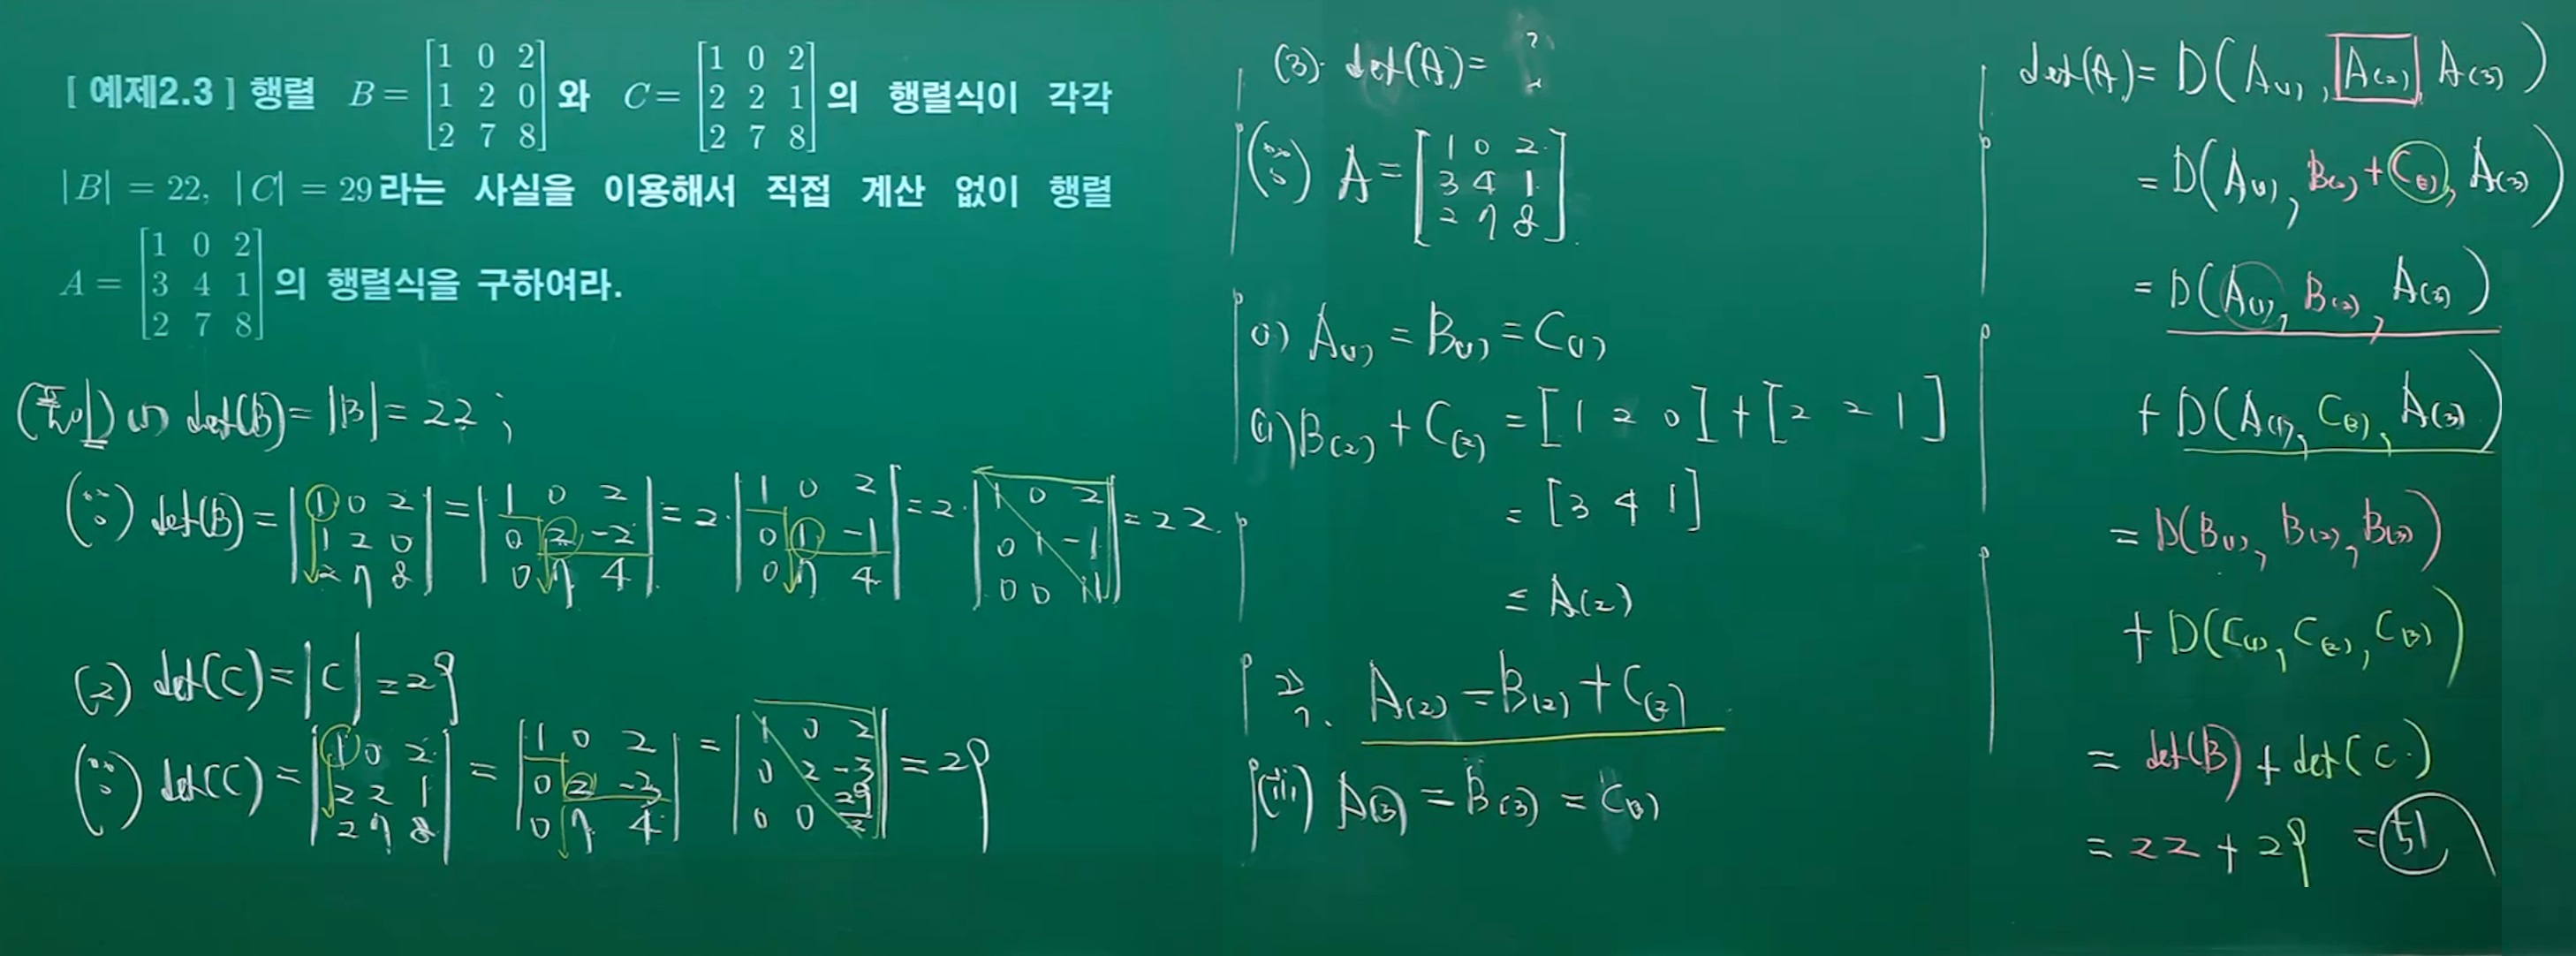 [ 예제2.3 ] 행렬 B = [1 0 2; 1 2 0; 2 7 8] 와 C = [1 0 2; 2 2 1; 2 7 8] 의 행렬식이 각각
|B| = 22, |C| = 29 라는 사실을 이용해서 직접 계산 없이 행렬
A = [1 0 2; 3 4 1; 2 7 8] 의 행렬식을 구하여라.
(풀이) (1) det(B) = |B| = 22 ;
(∵) det(B) = |1 0 2; 1 2 0; 2 7 8| = |1 0 2; 0 2 -2; 0 7 4| = 2·|1 0 2; 0 1 -1; 0 7 4| = 2·|1 0 2; 0 1 -1; 0 0 11| = 22.
(2) det(C) = |C| = 29
(∵) det(C) = |1 0 2; 2 2 1; 2 7 8| = |1 0 2; 0 2 -3; 0 7 4| = |1 0 2; 0 2 -3; 0 0 29/2| = 29
(3). det(A) = ?
(∵) A = [1 0 2; 3 4 1; 2 7 8].
(i) A(1) = B(1) = C(1)
(ii) B(2) + C(2) = [1 2 0] + [2 2 1]
= [3 4 1]
= A(2)
A(2) = B(2) + C(2)
(iii) A(3) = B(3) = C(3)
det(A) = D(A(1), A(2), A(3))
= D(A(1), B(2) + C(2), A(3))
= D(A(1), B(2), A(3))
+ D(A(1), C(2), A(3))
= D(B(1), B(2), B(3))
+ D(C(1), C(2), C(3))
= det(B) + det(C)
= 22 + 29 = 51